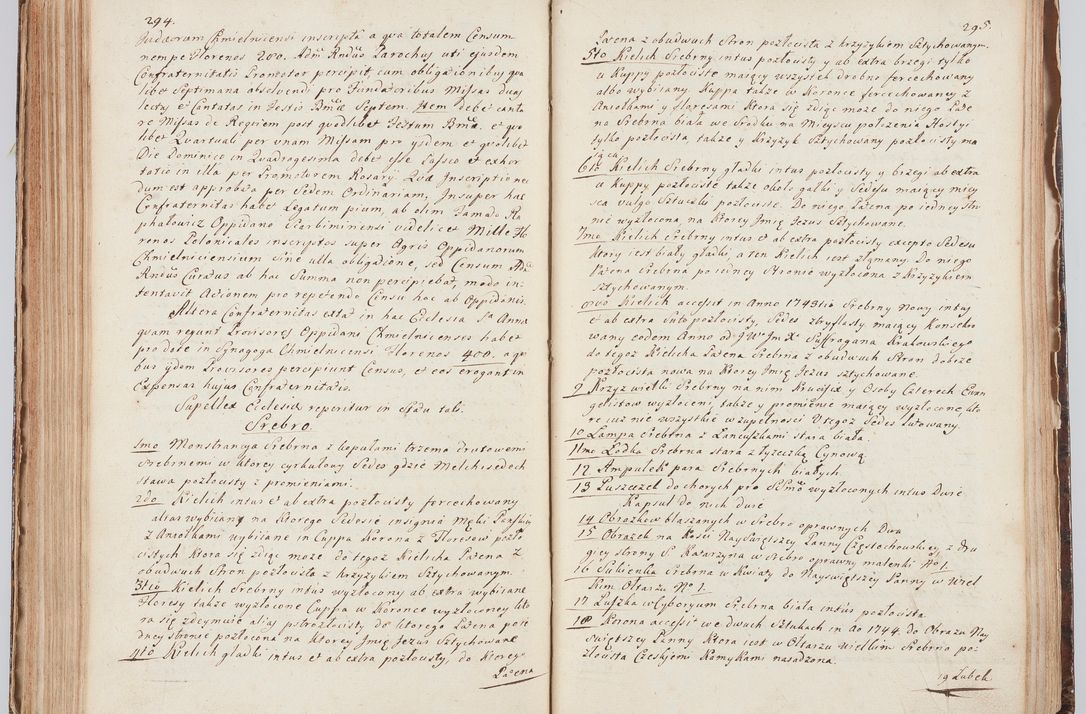 294.
Judæorum Chmielnicensi inscripta a qva totalem Censum
nempe Florenos 280. Admˢ Rndus Parochus uti ejusdem
Confraternitatis Promotor percipit, cum obligationibus qua
libet Septimana absolvendi pro Fundatoribus Missas duas
lectas et Cantatas in Festis Bmæ Septem. Item debet canta
re Missas de Requiem post quodlibet Festum Bmæ. et quo
libet Quartuali per unam Missam pro ijsdem et qvolibet
Die Dominico in Quadragesima debet esse Passio et exhor
tatio in illa per Promotorem Rosarij Qvæ Inscriptiones
dum est approbata per Sedem Ordinariam, Insuper hac
Confraternitas habet Legatum pium, ab olim Famato Ra
phałowicz Oppidano Skarbimiriensi videlicet Mille Flo
renos Polonicales inscriptos super Agris Oppidanorum
Chmielniciensium sine ulla obligatione, sed Censum Adm
Rndus Curatus ab hac Summa non percipiebat, modo in-
tentavit Actionem pro repetendo Censu hoc ab Oppidanis.
Altera Confraternitas exta in hac Ecclesia S. Anna
quam regunt Provisores Oppidani Chmielnicenses habet
pro dote in Synagoga Chmielnicensi Florenos 400. a qvi
bus ijdem Provisores percipiunt Census, et eos erogant in
Expensas hujus Confraternitatis.
Supellex Ecclesiæ reperitur in Statu tali.
Srebro.
1mo Monstrancya Srebrna z kopułami trzema drutowemi
Srebrnemi w ktorey cyrkułowy Sedes gdzie Melchisedech
stawa pozłocisty z promieniami.
2do Kielich intus et ab extra pozłocisty forcechowany
alias wybiiany na ktorego Sedesie insignia Męki Pańskiey
z Aniołkami wybiiane in Cuppa Korona z Floresow pozło
cistych ktora się zdiąc może do tegoż Kielicha Patena z
obudwuch Stron pozłocista z krzyżykiem Sztychowanym.
3tio Kielich Srebrny intus wyzłocony ab extra wybiiane
Floresy także wyzłocone Cuppa w Koronce wyzłoconey kto
ra się zdeymuie alias pstrozłocisty do ktorego Patena po ie
dney stronie pozłocona na ktorey Jmię Jezus Sztychowane
4to Kielich gładki intus et ab extra pozłoisty, do ktorego
Patena
295.
Patena z obudwuch Stron pozłocista z krzyżykiem Sztychowanym.
5to Kielich Srebrny intus pozłocisty y ab extra brzegi tylko
u Kuppy pozłociste maiący wszystek drobno forcechowany
albo wybiiany Kuppa także w Koronce forcechowaney z
Aniołkami y Floresami ktora się zdiąc może do niego Pate
na Srebrna biała we Srodku na Mieyscu położenia Hostyi
tylko pozłocista, także y Krzyżyk Sztychowany pozłocisty ma
iąca.
6to Kielich Srebrny gładki intus pozłocisty y brzegi ab extra
u Kuppy pozłociste także około gałki y Sedesu maiący miey
sca vulgo Sztuczki pozłociste. Do niego Patena po iedney stro
nie wyzłocona, na ktorey Jmię Jezus Sztychowane.
7mo Kielich Srebrny intus et ab extra pozłocisty excepto Sedesu
ktory iest biały gładki, a ten Kielich iest złamany. Do niego
Patena Srebrna po iedney Stronie wyzłocona z Krzyżykiem
Sztychowanym.
8vo Kielich accessit in Anno 1743tio Srebrny Nowy intus
et ab extra suto pozłocisty, Sedes zbryflasty maiący konsekro
wany eodem Anno od JW Jm X Suffragana Krakowskiego
do tegoż Kielicha Patena Srebrna z obudwuch Stron dobrze
pozłocista nowa na ktorey Jmię Jezus sztychowane.
9 Krzyż wielki Srebrny na nim Krucifix y Osoby Czterech Ewan
gelistow wyzłoceni także y promienie maiący wyzłocone, kto
re iuż nie wszystkie wzupełności U tegoż Sedes lutowany.
10 Lampa Srebrna z Łancuszkami stara biała.
11mo Lodka Srebrna stara z łyżeczką Cynową
12 Ampułek para Srebrnych białych
13 Puszeczek do chorych pro SSmo wyzłoconych intus Dwie
Kapsul do nich dwie
14 Obrazkow blaszanych w Srebro oprawnych Dwa
15 Obrazek na Kości Nayświętszey Panny Częstochowskiey, z dru
giey strony S. Katarzyna w Srebro oprawny malenki No 1.
16 Sukienka Srebrna w Kwiaty do Nayświętszey Panny w Wiel
kim Ołtarzu No 1.
17 Puszka w Cyboryum Srebrna biała intus pozłocista
18 Korona accessit we dwuch Sztukach in Ao 1744. do Obrazu Nay
swiętszey Panny ktora iest w Ołtarzu wielkim Srebrno po-
złocista Czeskiemi Kamykami nasadzona.
19 Tabek